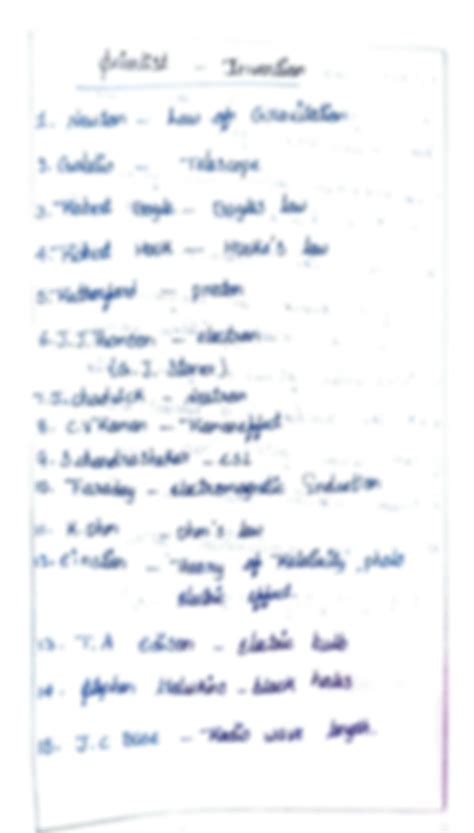 Scientist - Invention
1. Newton - Law of Gravitation
2. Galileo - Telescope
3. Robert Boyle - Boyle's law
4. Robert Hook - Hooke's law
5. Rutherford - proton
6. J.J. Thomson - electron
7. J. chadwick - neutron
8. C.V Raman - Raman effect
9. S. chandrashekar -
10. Faraday - electromagnetic Induction
11. ohm - ohm's law
12. Einstien - Theory of Relativity, photo
electric effect.
13. T.A Edison - electric bulb
14. Stephen Hawkins - black holes
15. J.C Bose - Radio wave length.